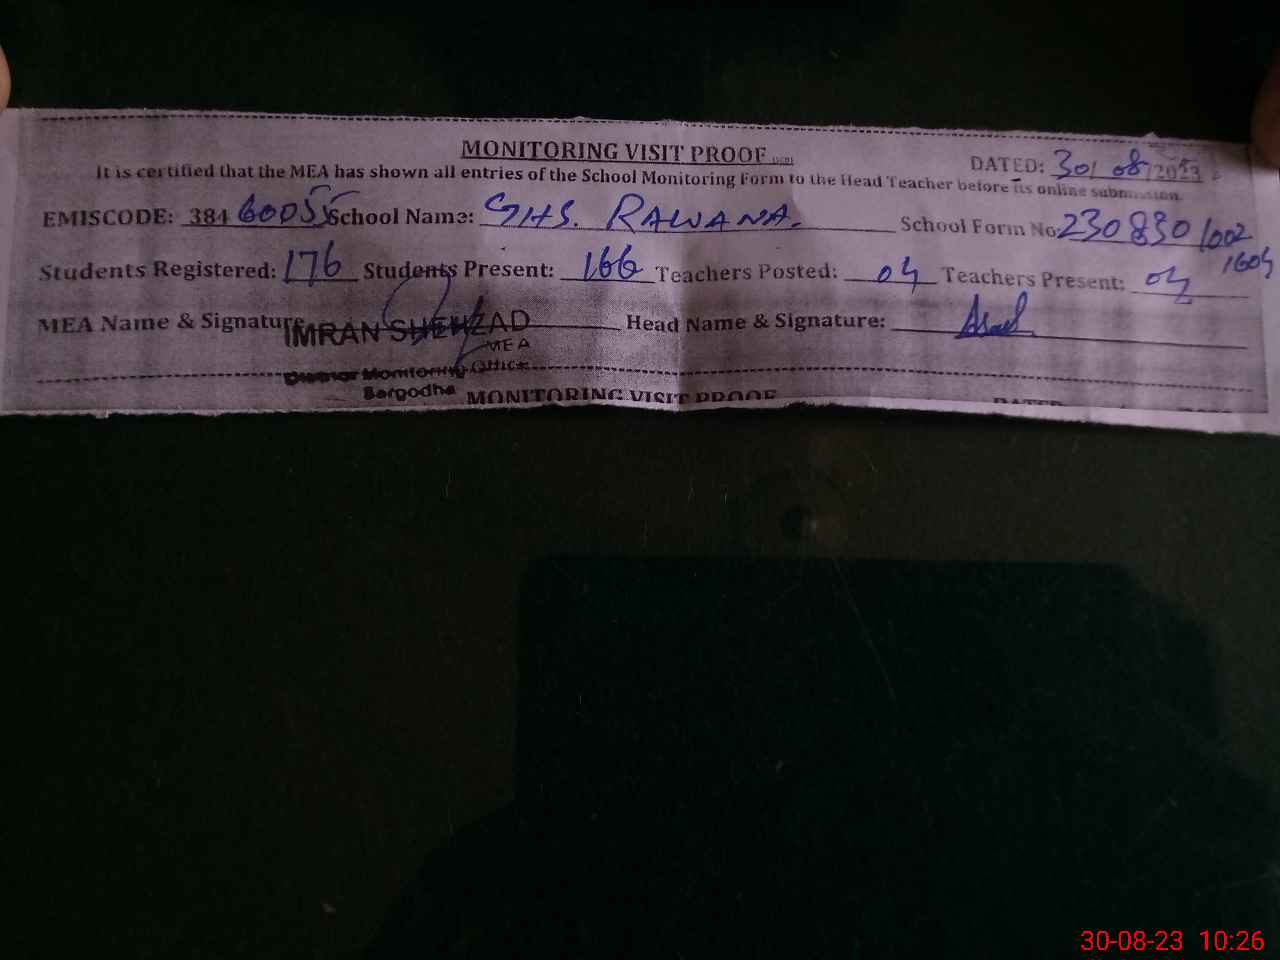 MONITORING VISIT PROOF
DATED: 30/08/2023
It is certified that the MEA has shown all entries of the School Monitoring Form to the Head Teacher before its online submission.
EMISCODE: 38460055 School Name: GHS. RAWANA. School Form No: 230830 1002
1604
Students Registered: 176 Students Present: 166 Teachers Posted: 04 Teachers Present: 04
MEA Name & Signature Head Name & Signature:
IMRAN SHEHZAD
MEA
District Monitoring Office
Sargodha
MONITORING VISIT PROOF DATED
30-08-23 10:26